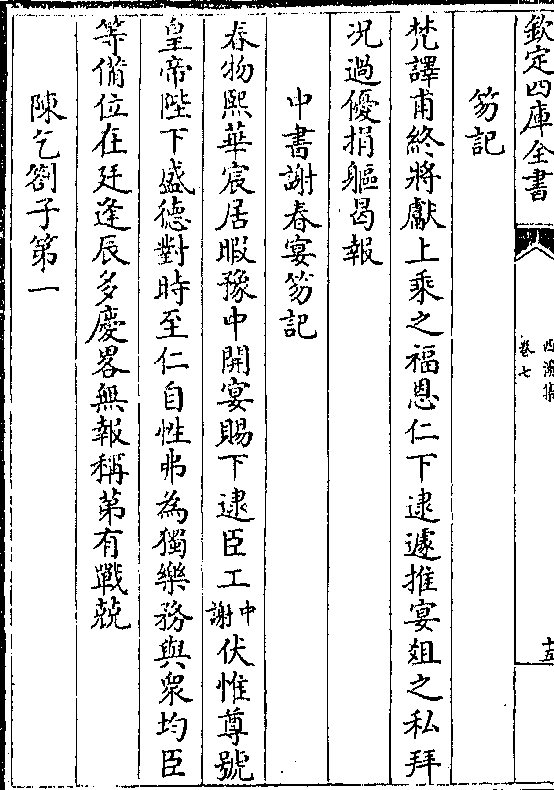 欽定四庫全書
西溪集
卷七
十五
笏記
梵譯甫終將獻上乘之福恩仁下逮遽推宴俎之私拜
況過優捐軀曷報
中書謝春宴笏記
春物熙華宸居暇豫中開宴賜下逮臣工中謝伏惟尊號
皇帝陛下盛德對時至仁自性弗為獨樂務與衆均臣
等備位在廷逢辰多慶畧無報稱第有戰兢
陳乞劄子第一